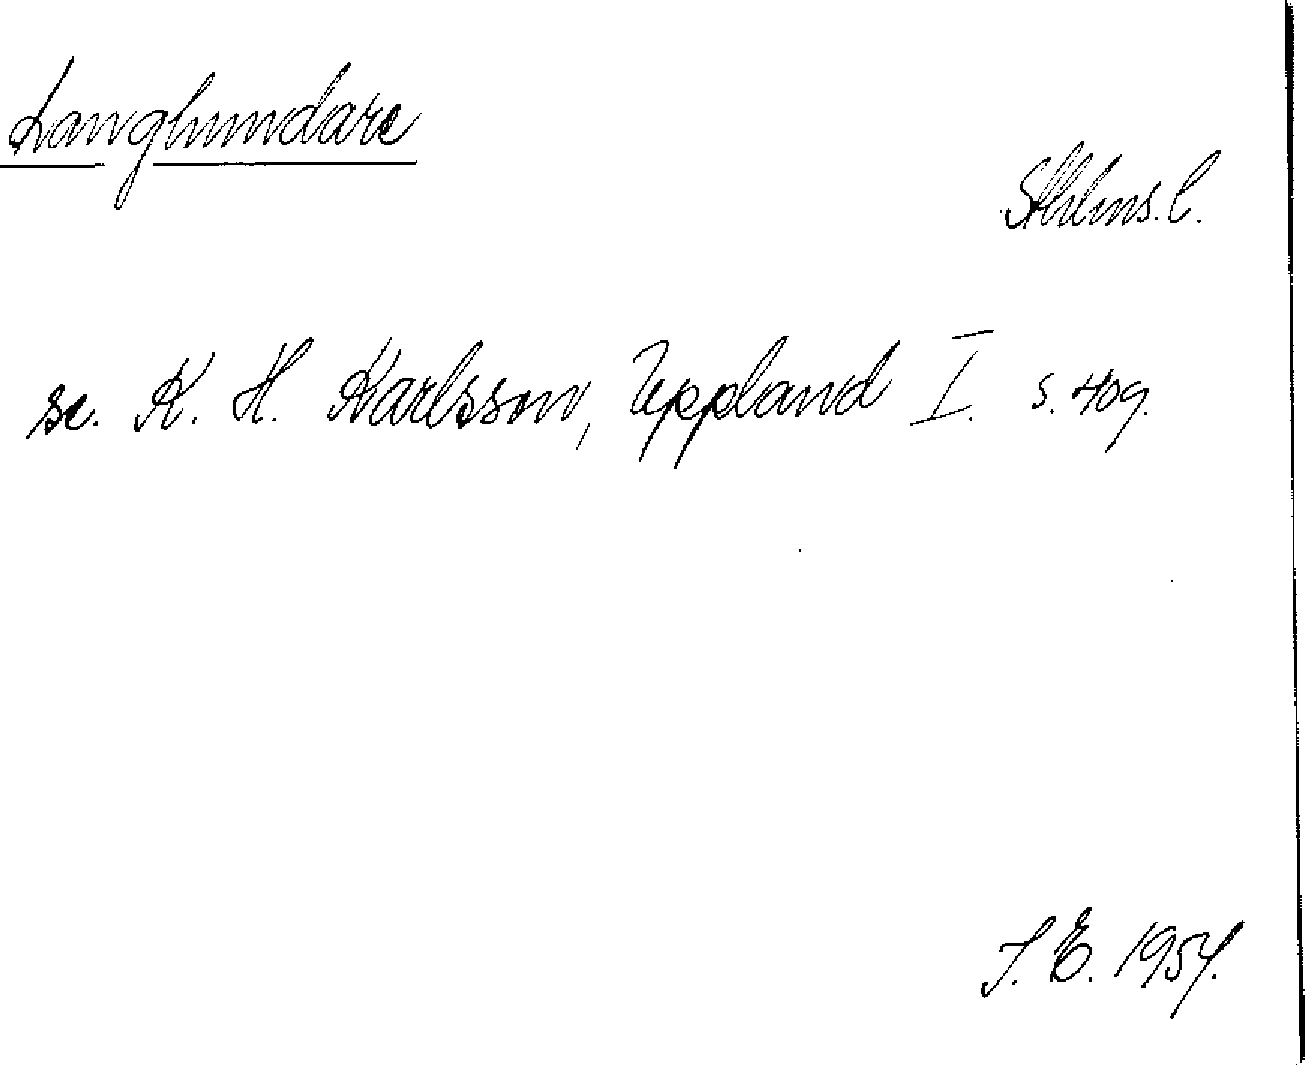 Langhundare
Sthlms. l.
se. K. H. Karlsson, Uppland I. s. 409.
J. E. 1954.